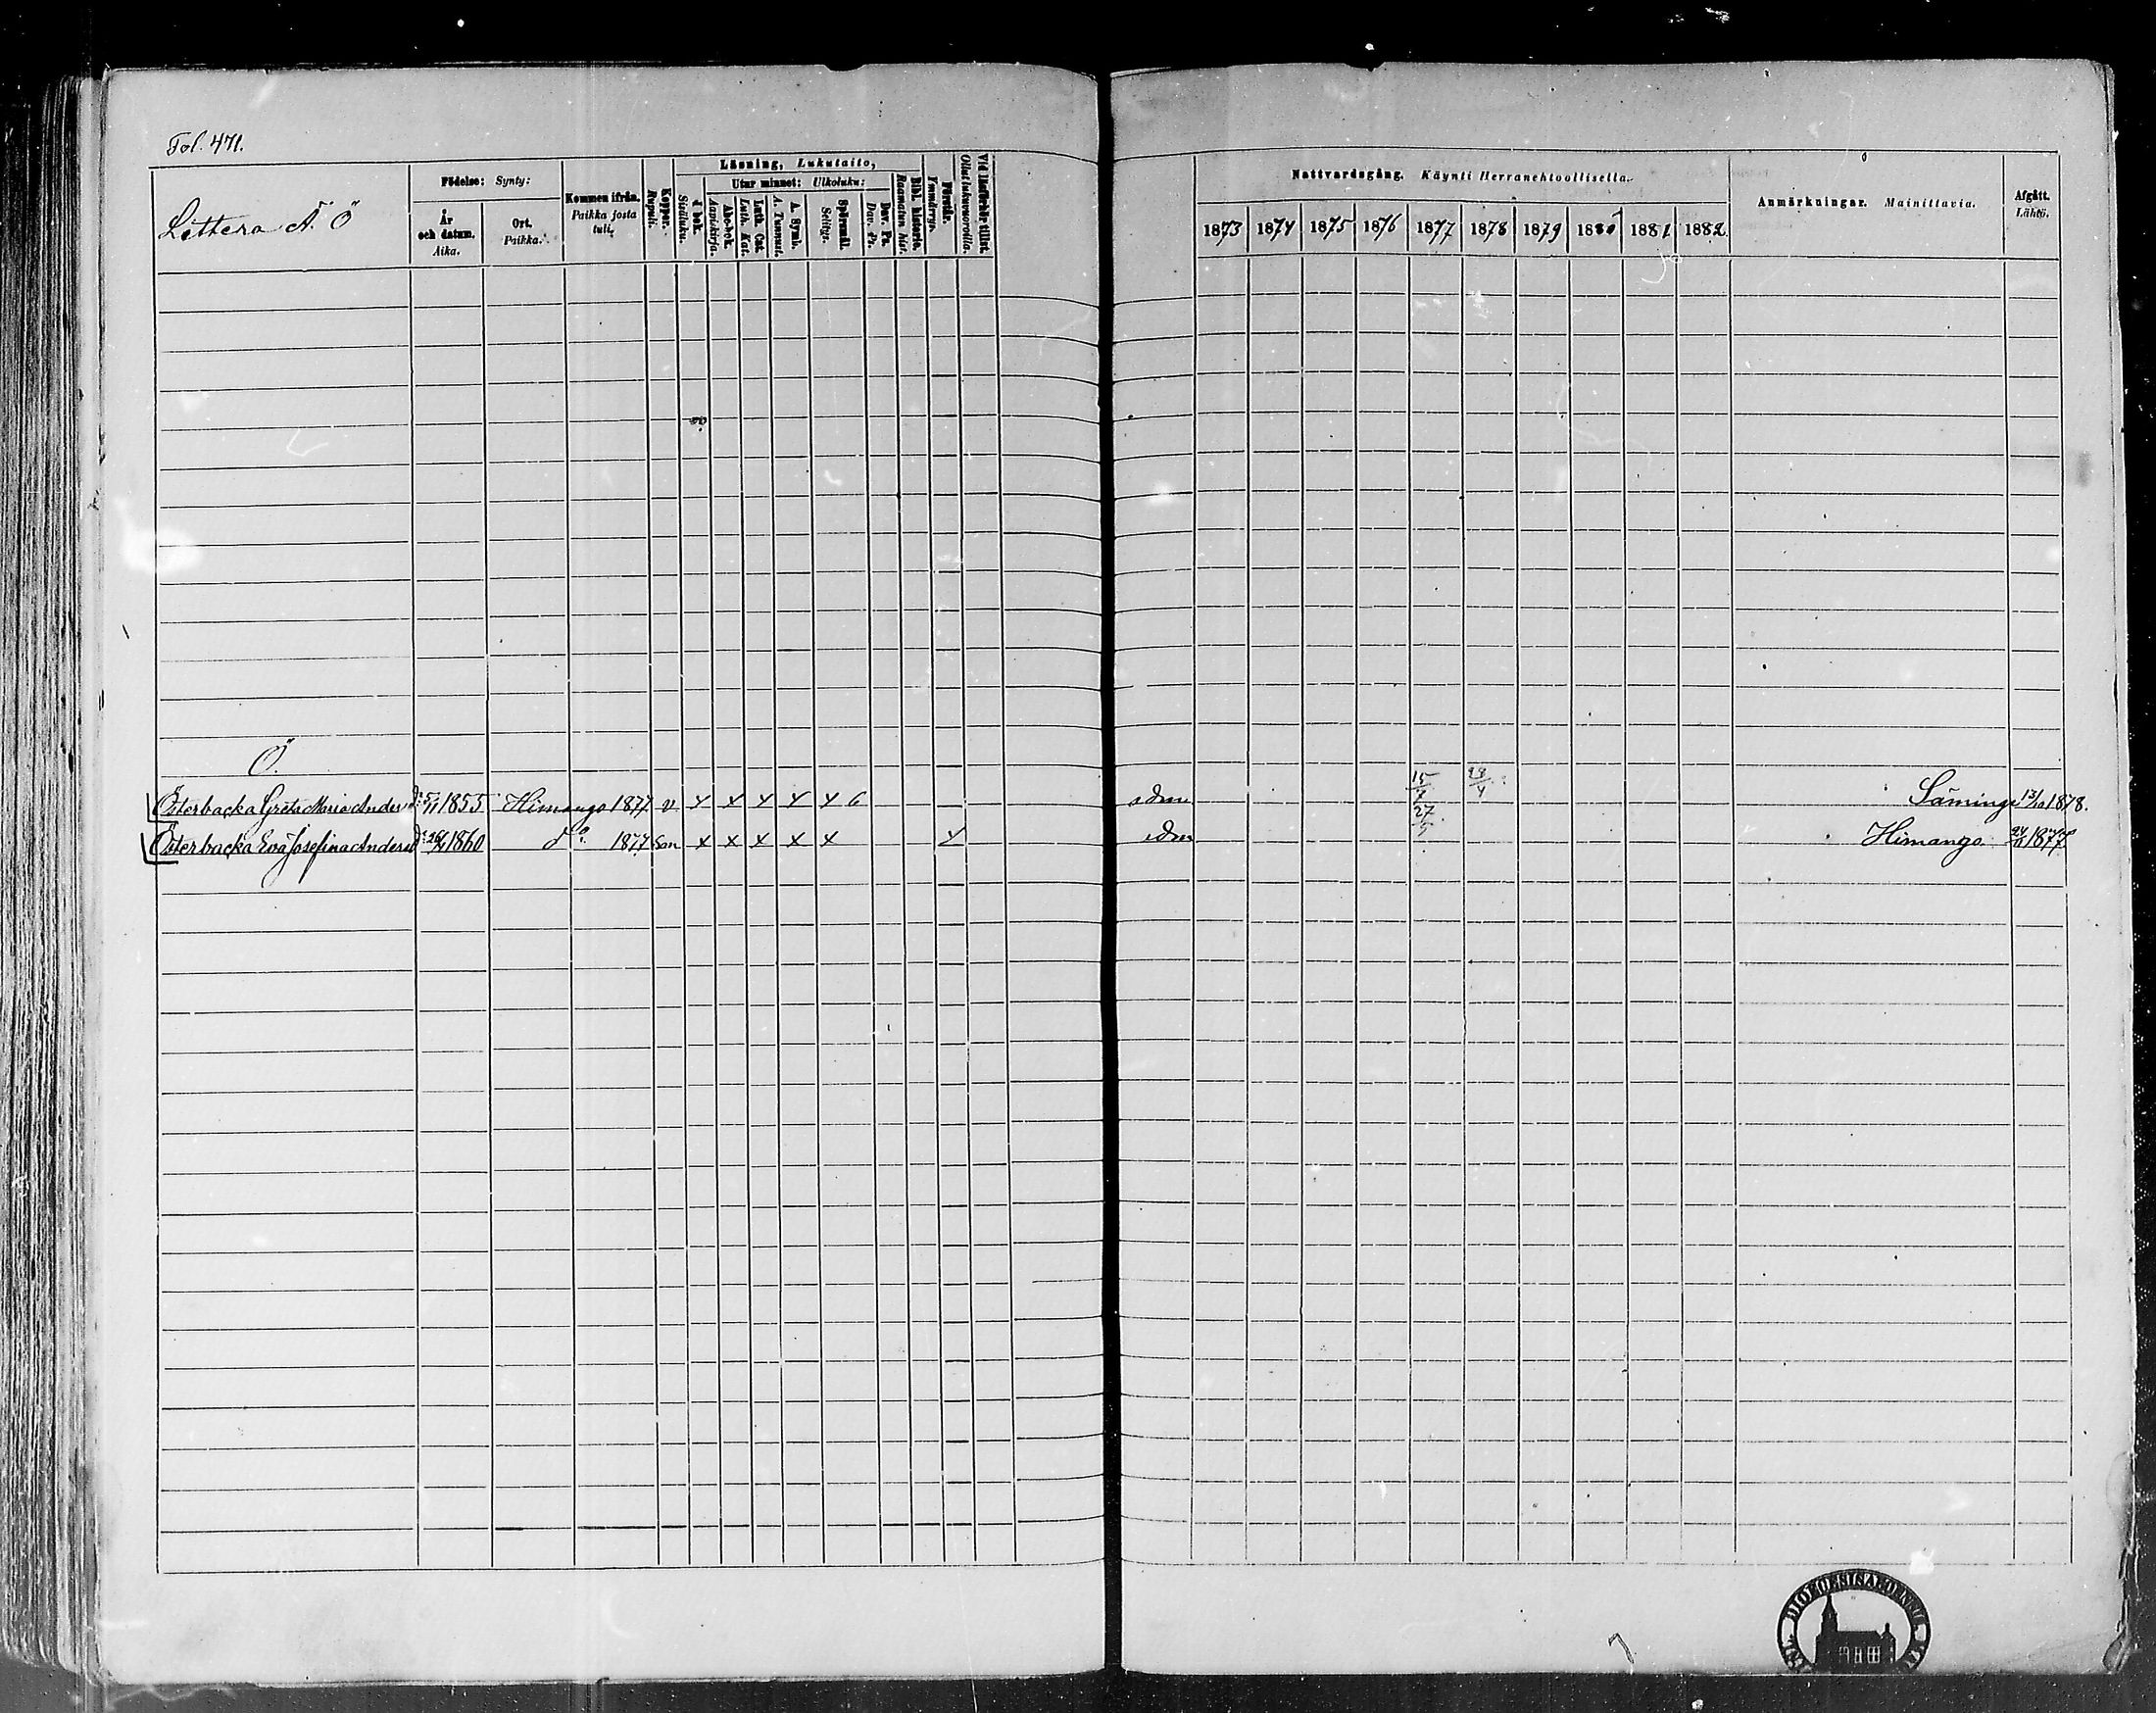 Fol. 471.
Littera Ä. Ö
Födelse: Synty:
År och datum. Aika.
Ort. Paikka.
Kommen ifrån. Paikka josta tuli.
Koppor. Rupuli.
Läsning, Lukutaito,
Utur minnet: Ulkoluku:
d bok. Sisäluku.
Abc-bok. Aapiskirja.
Luth. Cat. Luth. Kat.
A. Symb. A. Tunnust.
Spörsmål. Selitys.
Dav. Ps. Dav. Ps.
Bibl. historia. Raamatun hist.
Förstår. Ymmärrys.
Vid läsförhör tillst. Ollut lukuvuoroilla.
Nattvardsgång. Käynti Herranehtoollisella.
1873 1874 1875 1876 1877 1878 1879 1880 1881 1882
Anmärkningar. Mainittavia.
Afgått. Lähtö.
Ö.
Österbacka Greta Maria Anders d:r 5/11 1855 Himango 1877 v x x x x x 6 15/7 28/4 Säminge 13/10 1878.
Österbacka Eva Josefina Anders d:r 1860 d:o 1877 x x x x x 27/5 Himango 1877
DIOECESIS ABOENSIS